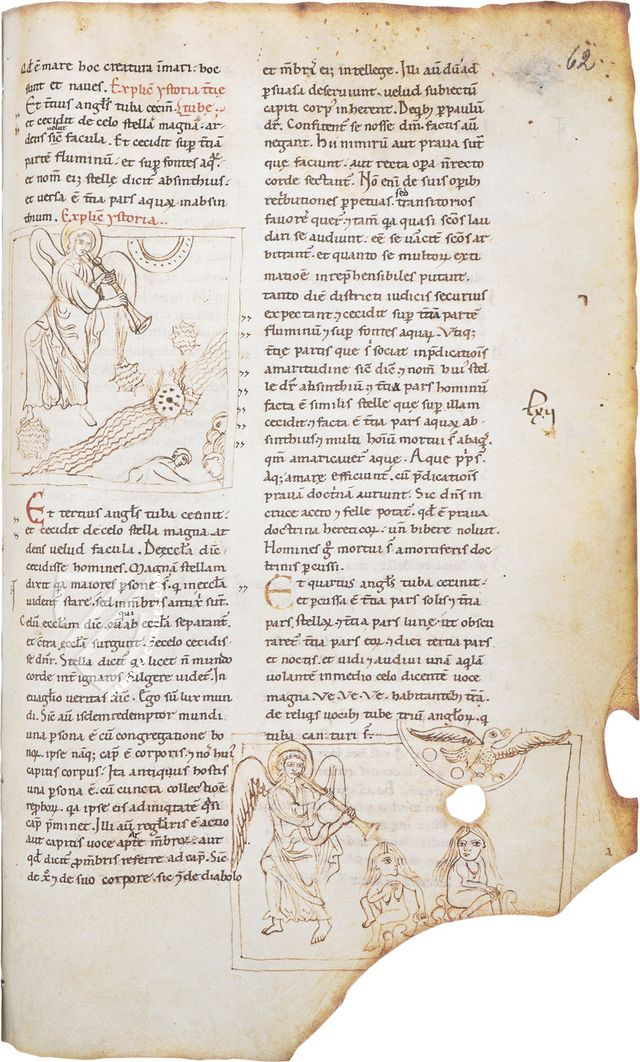 62
Qd̄ ē mare hoc creatura in mari. hoc
sunt et naves. Explic̄ ystoria tcīe
Et tcīus angłs tuba cecin̄. tube.
et cecidit de celo stella magna. ar
dens sic̄ facula. Et cecidit sup̄ tcīā
partē fluminū. et sup̄ fontes aq̄ꝝ.
et nom̄ ei stelle dicit̄ absinthius.
et versa ē tcīa pars aquaꝝ in absin
thium. Explic̄ ystoria..
Et tertius angłs tuba cecinit.
et cecidit de celo stella magna. ar
dens velud facula. De eccła dic̄
cecidisse homines. Magnā stellam
dixit q̄a maiores psonę s̄. q̄ in eccła
vident̄ stare. sed in mb̄ris antixp̄i sunt.
ab eccła separant̄.
et cōtra eccłam surgunt. de celo cecidis
se dn̄r. Stella dicit̄ q̄a licet in mundo
corde int̄ ignaros fulgere videt̄. In
evaḡlio veritas dic̄. Ego sū lux mun
di. Sic aū isdem redemptor mundi
una psona ē cū congregatione bo
noꝝ. ipse naq; cap̄ ē corporis. ⁊ nos hui
capitis corpus. Ita antiquus hostis
una psona ē cū cuncta collectionē
reprboꝝ. q̄a ipse eis ad iniq̄tatē q̄si
cap̄ p̄minet. Illi aū
aut capitis voce apte mb̄roꝝ. aut
qd̄ dicit̄ p mb̄ris referre ad cap̄. Sic̄
de xp̄o ⁊ de suo corpore. sic ⁊ de diabolo
et mb̄ris ei intellege. Illi aū dū ad
p̄suasa deserviunt. velud subiectū
capiti corp̄ inherent. De qb; p paulū
dr̄. Confitent̄ se nosse dm̄. factis aū
negant. Hii nimirū aut prava sūt
que faciunt. aut recta opa n̄ recto
corde sectant̄. Nō eni de suis opib;
retributiones ppetuas. sed transitorios
favores querunt. ⁊ tam̄ q̄a quasi sc̄os lau
dari se audiunt. eē se vacit̄ sc̄os ar
bitrant̄. et quanto se multoꝝ exti
matione inrep̄hensibiles putant.
tanto diē districti iudicis securius
expectant ⁊ cecidit sup̄ tcīā partē
fluminū ⁊ sup̄ fontes aquaꝝ. Utiq;
tcīę partis que s̄ sociat̄ in p̄dicationis
amaritudine sic̄ dic̄ ⁊ nom̄ hui stel
le dr̄ absinthiū ⁊ tcīa pars hominū
facta ē similis stelle que sup̄ illam
cecidit ⁊ facta ē tcīa pars aquaꝝ ab
sinthius ⁊ multi hom̄ū mortui s̄ ab aq̄.
qm̄ amaricaverunt aque. Aque pp̄łs.
Aq; amare efficiunt̄. cū p̄dicationis
pravā doctrinā auriunt. Sic dn̄s in
cruce aceto ⁊ felle potat̄. qd̄ ē prava
doctrina hereticoꝝ. un̄ bibere noluit.
Homines g̊ mortui s̄ a mortiferis doc
trinis p̄cussi.
Et quartus angłs tuba cecinit.
et pcussa ē tcīa pars solis ⁊ tcīa
pars stellaꝝ ⁊ tcīa pars lune. ut obscu
raret̄ tcīa pars eoꝝ ⁊ diei tertia pars
et noctis. et vidi ⁊ audivi unā aq̄lā
volantē in medio celo dicentē voce
magna Ve. Ve. Ve. habitantib; tcīā.
de reliqs vocib; tube triū angłoꝝ. q̄
tuba canituri s̄.
lxij